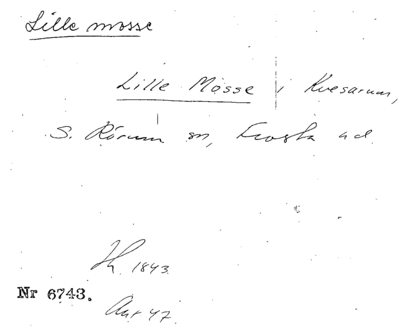 Lille mosse
Lille Mosse i Kvesarum,
S. Rörum sn, Frosta hd
Jh. 1843.
Nr 6743.
Ant 47.